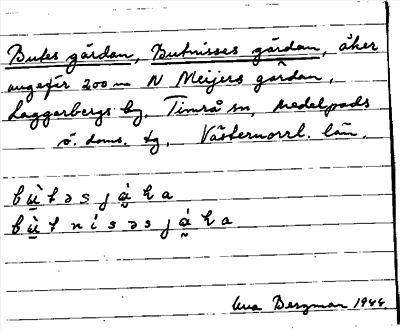 Butes gärdan, Butnisses gärdan, åker
ungefär 200 m N Meijers gårdan,
Laggarbergs by, Timrå sn, Medelpads
ö. doms. tg, Västernorrl. län.
bù̲təsjá̰ka
bù̲tnísəsjá̰ka
Eva Bergman 1944.